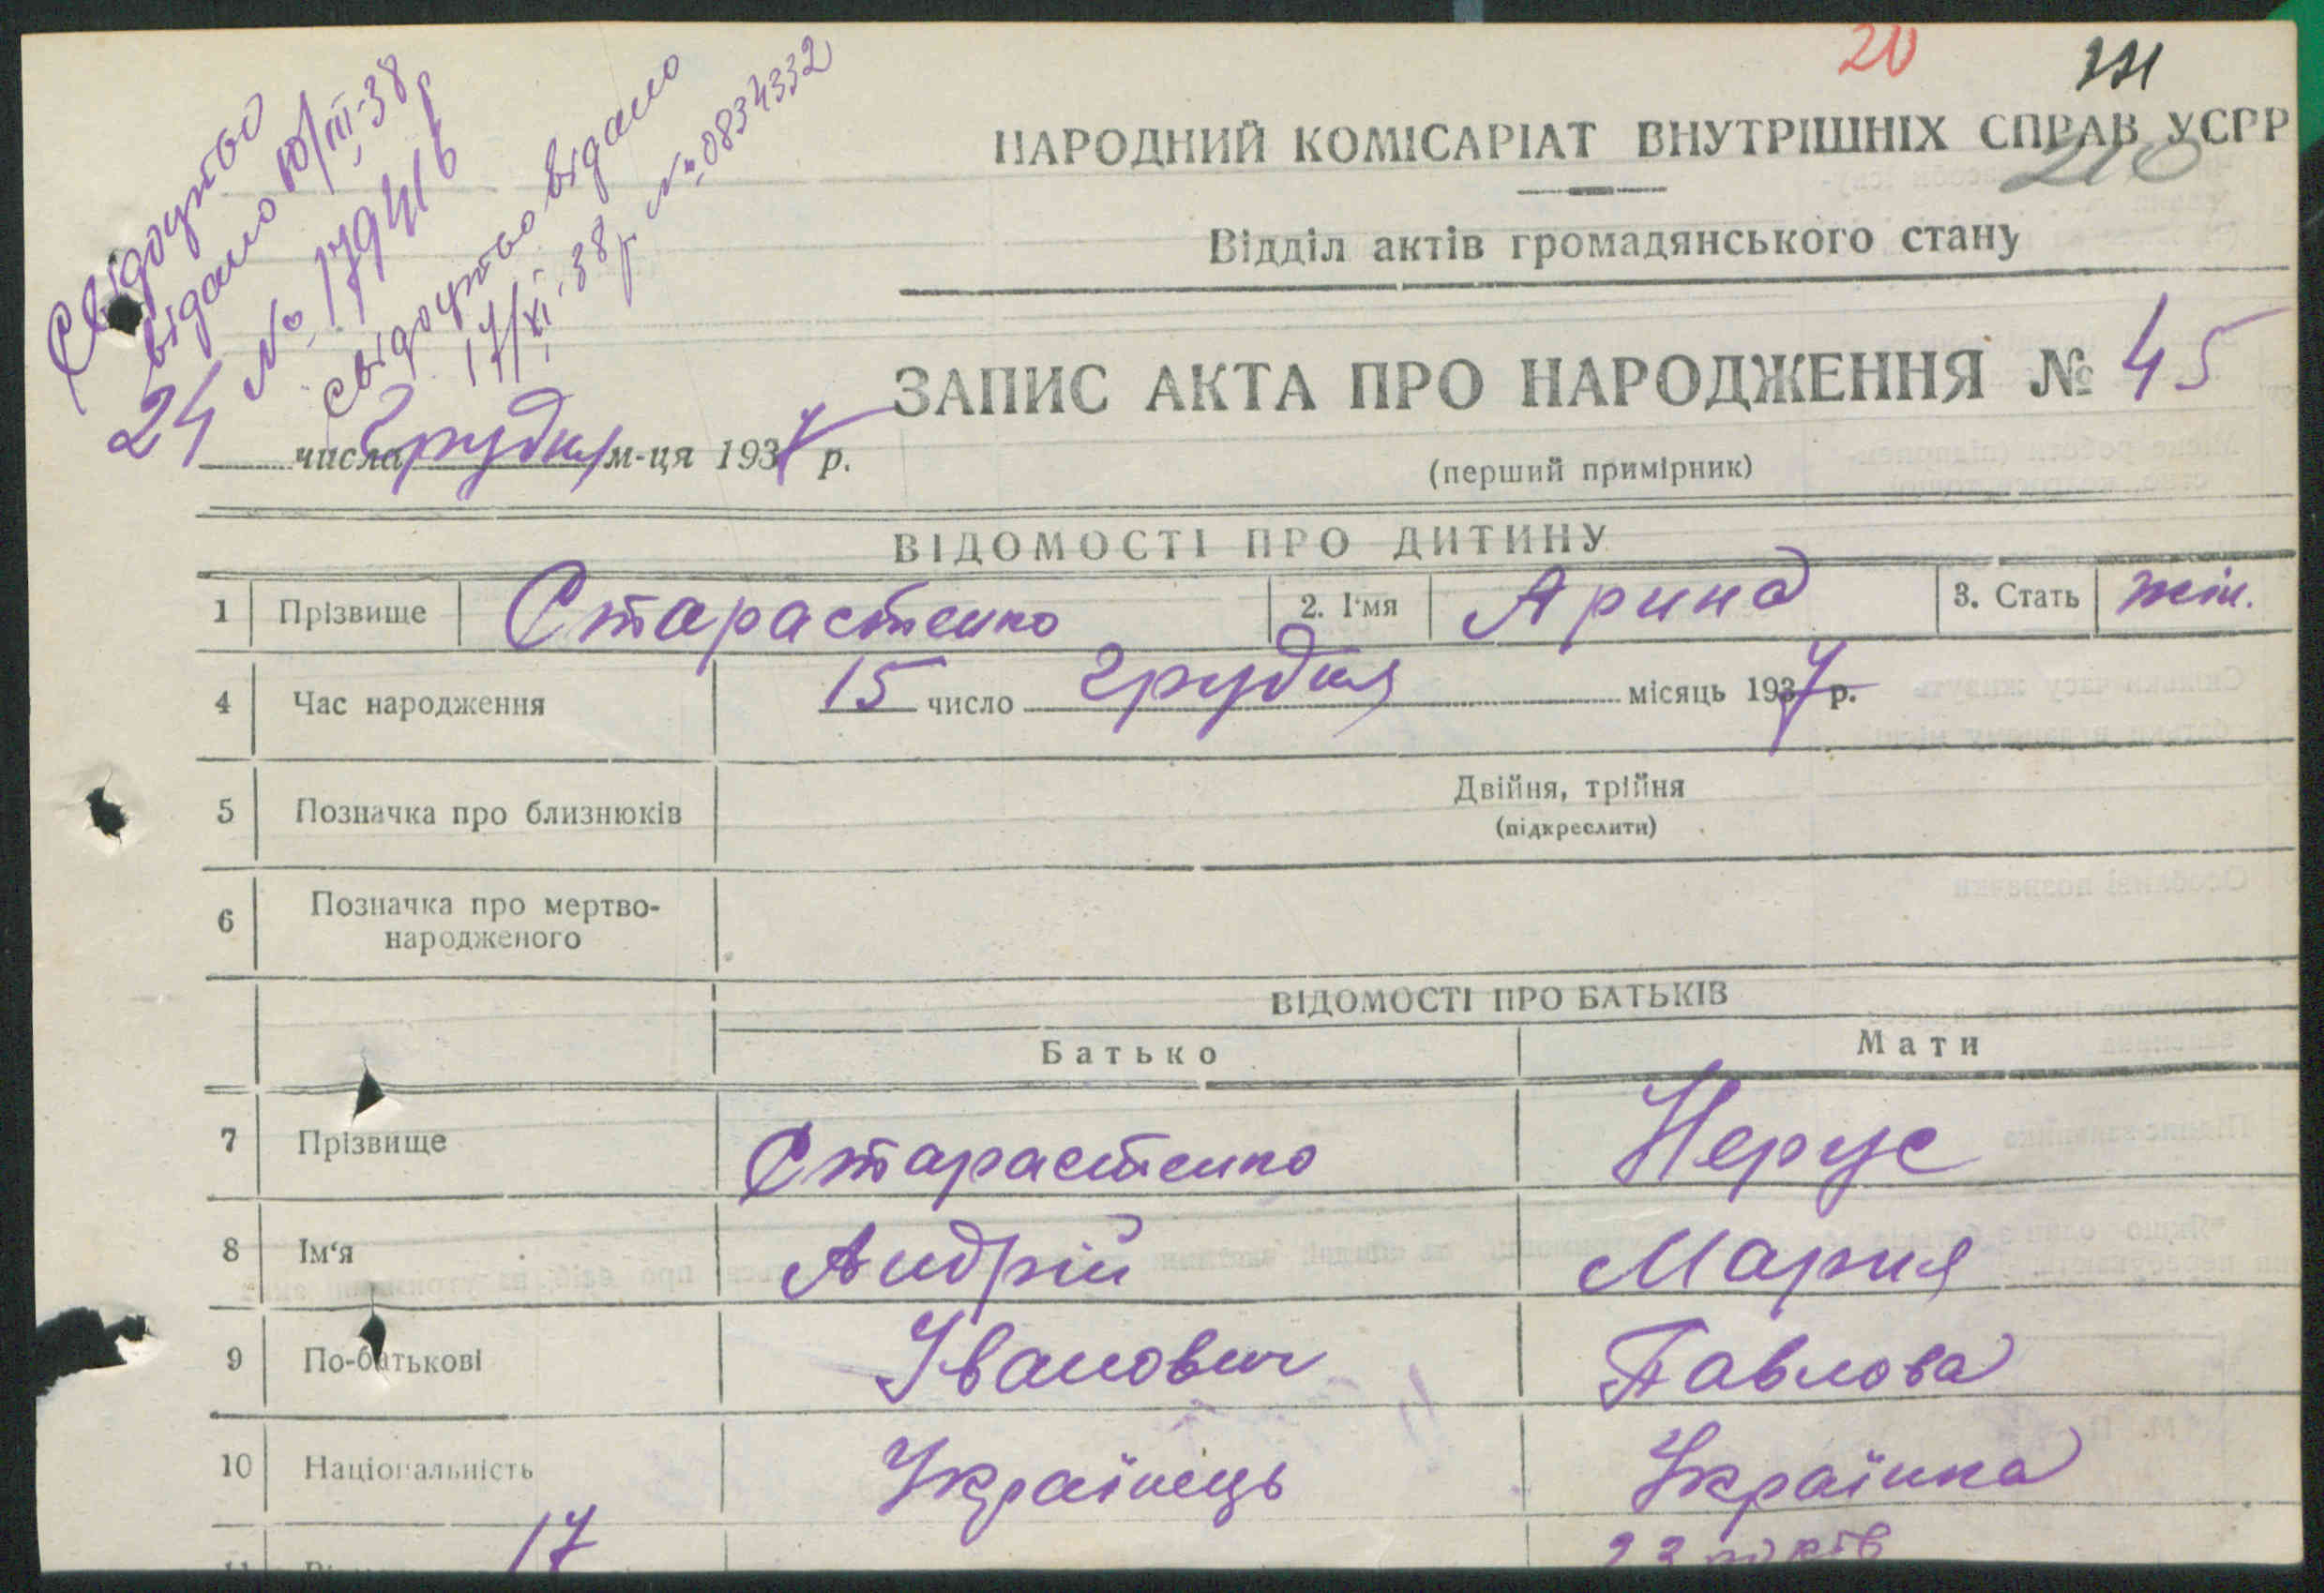 20
НАРОДНИЙ КОМІСАРІАТ ВНУТРІШНІХ СПРАВ УСРР
210
Відділ актів громадянського стану
Свідоцтво
відано 10/III-38р
№ 179416
свідоцтво відано
17/XI-38р №0834332
ЗАПИС АКТА ПРО НАРОДЖЕННЯ № 45
24 числа Грудня м-ця 1937 р.
(перший примірник)
ВІДОМОСТІ ПРО ДИТИНУ
1 Прізвище Старастенко 2. І'мя Арина 3. Стать жін.
4 Час народження 15 число грудня місяць 1937 р.
5 Позначка про близнюків Двійня, трійня
(підкреслити)
6 Позначка про мертво-
народженого
ВІДОМОСТІ ПРО БАТЬКІВ
Батько Мати
7 Прізвище Старастенко Нерус
8 Ім'я Андрій Мария
9 По-батькові Іванович Павлова
10 Національність Українець Українка
17 22 років